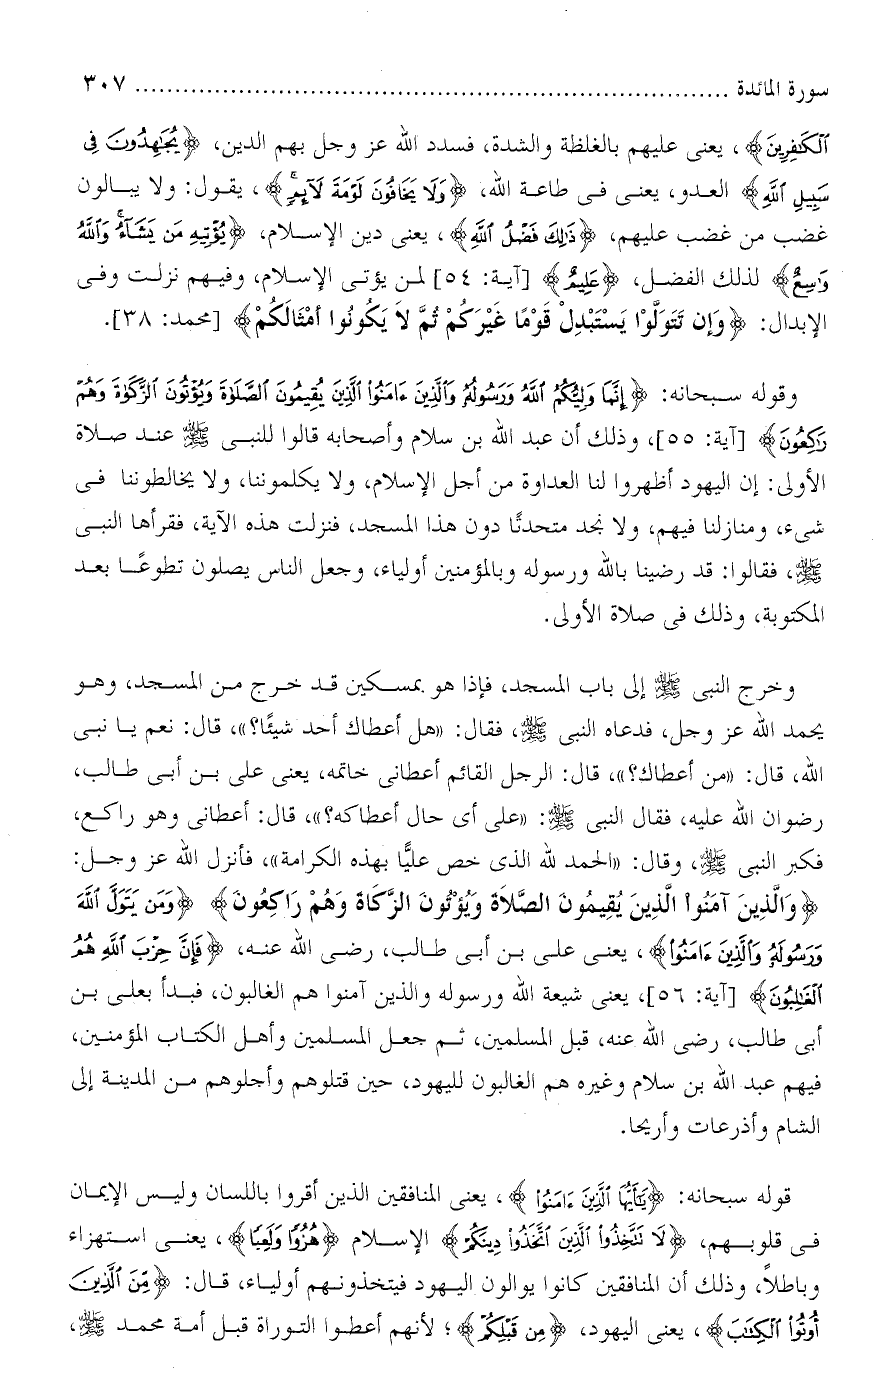 سورة المائدة ................................................................ ٣٠٧
ٱلْكَٰفِرِينَ﴾، يعنى عليهم بالغلظة والشدة، فسدد الله عز وجل بهم الدين، ﴿يُجَٰهِدُونَ فِى
سَبِيلِ ٱللَّهِ﴾ العدو، يعنى فى طاعة الله، ﴿وَلَا يَخَافُونَ لَوْمَةَ لَآئِمٍ﴾، يقول: ولا يبالون
غضب من غضب عليهم، ﴿ذَٰلِكَ فَضْلُ ٱللَّهِ﴾، يعنى دين الإسلام، ﴿يُؤْتِيهِ مَن يَشَآءُ وَٱللَّهُ
وَٰسِعٌ﴾ لذلك الفضل، ﴿عَلِيمٌ﴾ [آية: ٥٤] لمن يؤتى الإسلام، وفيهم نزلت وفى
الإبدال: ﴿وَإِن تَتَوَلَّوْا يَسْتَبْدِلْ قَوْمًا غَيْرَكُمْ ثُمَّ لاَ يَكُونُوا أَمْثَالَكُمْ﴾ [محمد: ٣٨].
وقوله سبحانه: ﴿إِنَّمَا وَلِيُّكُمُ ٱللَّهُ وَرَسُولُهُۥ وَٱلَّذِينَ ءَامَنُوا۟ ٱلَّذِينَ يُقِيمُونَ ٱلصَّلَوٰةَ وَيُؤْتُونَ ٱلزَّكَوٰةَ وَهُمْ
رَٰكِعُونَ﴾ [آية: ٥٥]، وذلك أن عبد الله بن سلام وأصحابه قالوا للنبى ﷺ عند صلاة
الأولى: إن اليهود أظهروا لنا العداوة من أجل الإسلام، ولا يكلموننا، ولا يخالطوننا فى
شىء، ومنازلنا فيهم، ولا نجد متحدثًا دون هذا المسجد، فنزلت هذه الآية، فقرأها النبى
ﷺ، فقالوا: قد رضينا بالله ورسوله وبالمؤمنين أولياء، وجعل الناس يصلون تطوعًا بعد
المكتوبة، وذلك فى صلاة الأولى.
وخرج النبى ﷺ إلى باب المسجد، فإذا هو بمسكين قد خرج من المسجد، وهو
يحمد الله عز وجل، فدعاه النبى ﷺ، فقال: «هل أعطاك أحد شيئًا؟»، قال: نعم يا نبى
الله، قال: «من أعطاك؟»، قال: الرجل القائم أعطانى خاتمه، يعنى على بن أبى طالب،
رضوان الله عليه، فقال النبى ﷺ: «على أى حال أعطاكه؟»، قال: أعطانى وهو راكع،
فكبر النبى ﷺ، وقال: «الحمد لله الذى خص عليًّا بهذه الكرامة»، فأنزل الله عز وجل:
﴿وَالَّذِينَ آمَنُواْ الَّذِينَ يُقِيمُونَ الصَّلاَةَ وَيُؤْتُونَ الزَّكَاةَ وَهُمْ رَاكِعُونَ﴾ ﴿وَمَن يَتَوَلَّ ٱللَّهَ
وَرَسُولَهُۥ وَٱلَّذِينَ ءَامَنُوا۟﴾، يعنى على بن أبى طالب، رضى الله عنه، ﴿فَإِنَّ حِزْبَ ٱللَّهِ هُمُ
ٱلْغَٰلِبُونَ﴾ [آية: ٥٦]، يعنى شيعة الله ورسوله والذين آمنوا هم الغالبون، فبدأ بعلى بن
أبى طالب، رضى الله عنه، قبل المسلمين، ثم جعل المسلمين وأهل الكتاب المؤمنين،
فيهم عبد الله بن سلام وغيره هم الغالبون لليهود، حين قتلوهم وأجلوهم من المدينة إلى
الشام وأذرعات وأريحا.
قوله سبحانه: ﴿يَٰٓأَيُّهَا ٱلَّذِينَ ءَامَنُوا۟﴾، يعنى المنافقين الذين أقروا باللسان وليس الإيمان
فى قلوبهم، ﴿لَا تَتَّخِذُوا۟ ٱلَّذِينَ ٱتَّخَذُوا۟ دِينَكُمْ﴾ الإسلام ﴿هُزُوًا وَلَعِبًا﴾، يعنى استهزاء
وباطلاً، وذلك أن المنافقين كانوا يوالون اليهود فيتخذونهم أولياء، قال: ﴿مِّنَ ٱلَّذِينَ
أُوتُوا۟ ٱلْكِتَٰبَ﴾، يعنى اليهود، ﴿مِن قَبْلِكُمْ﴾؛ لأنهم أعطوا التوراة قبل أمة محمد ﷺ،